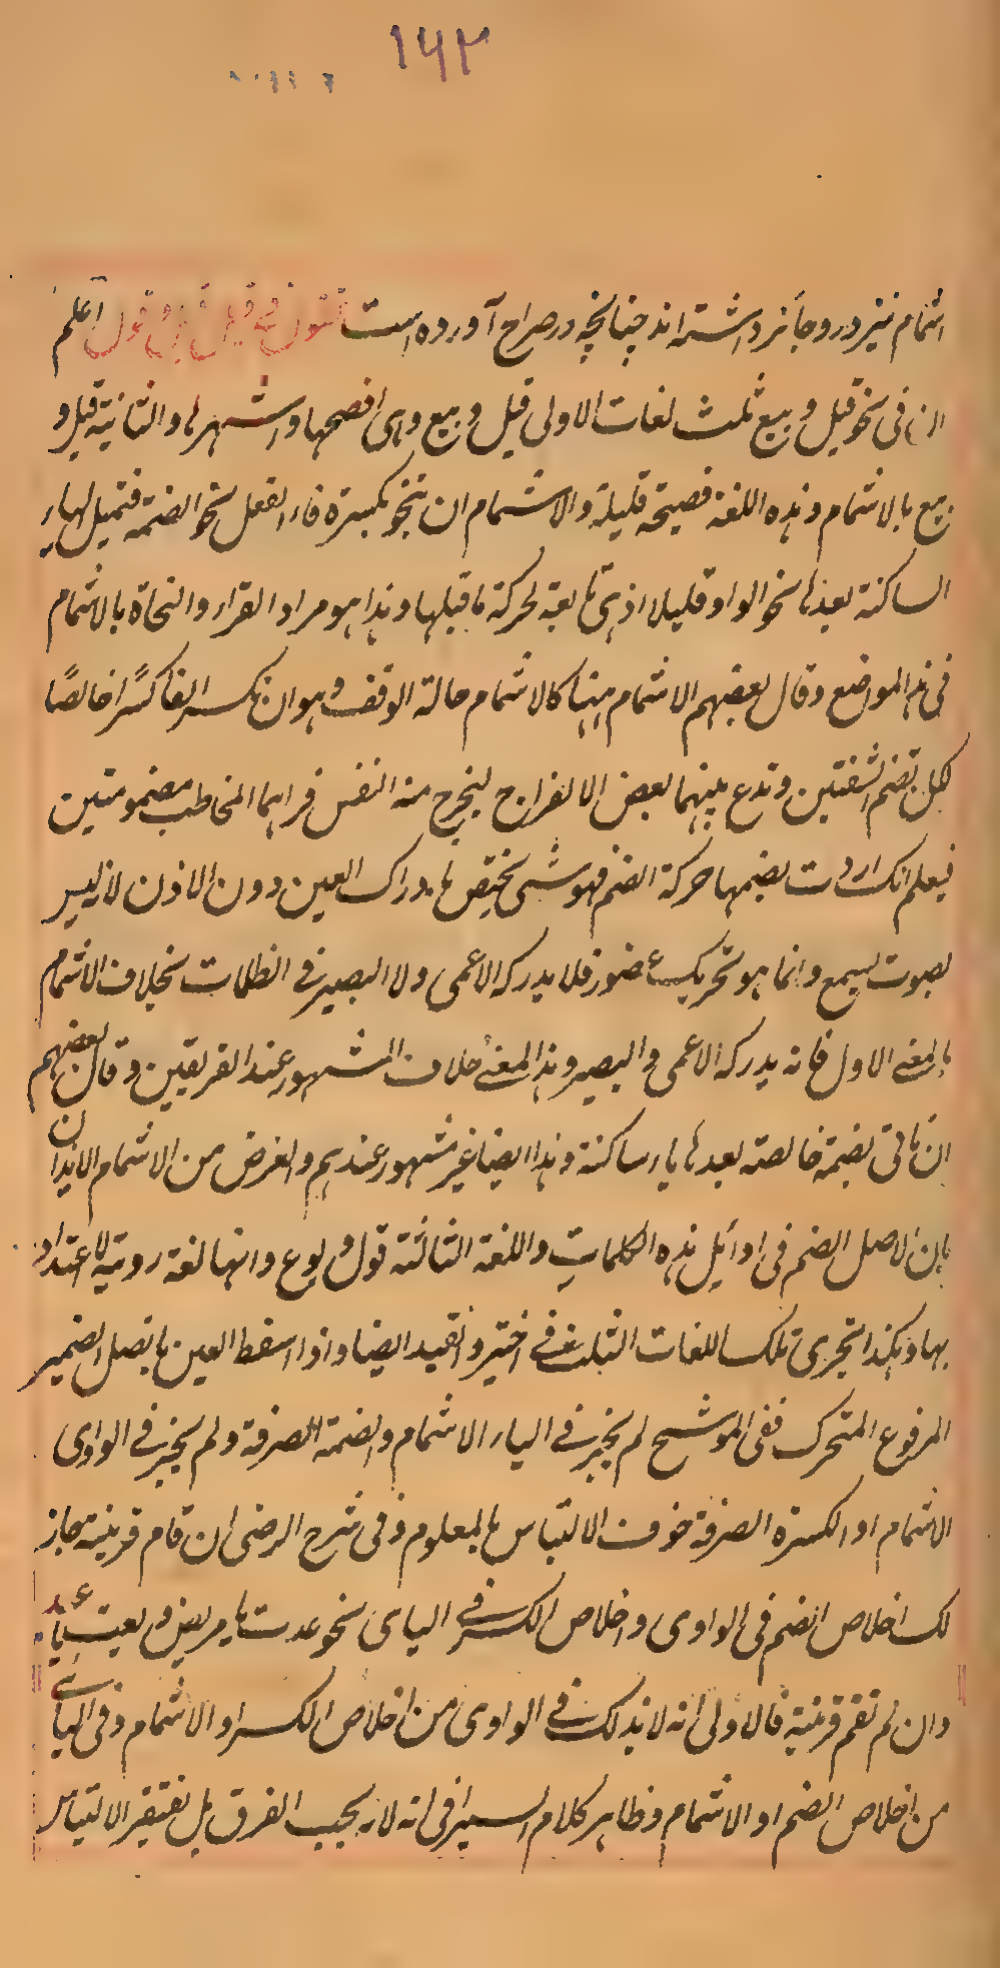 ١٦٢
اشمام نیز درو جائز داشته اند چنانچه در صراح آورده است اعلم
ان فى نحو قيل و بيع ثلث لغات الاولى قيل و بيع وهى افصحها واشهرها والثانية قيل و
بيع بالاشمام وهذه اللغة فصيحة قليلة والاشمام ان تنحو بكسرة فاء الفعل نحو الضمة فتميل الياء
الساكنة بعدها نحو الواو قليلا اذ هى تابعة لحركة ما قبلها وهذا هو مراد القراء والنحاة بالاشمام
فى هذا الموضع وقال بعضهم الاشمام ههنا كالاشمام حالة الوقف وهو ان تكسر الفا كسرًا خالصًا
لكل تضم الشفتين وتدع بينهما بعض الانفراج ليخرج منه النفس فيراهما المخاطب مضمومتين
فيعلم انك اردت بضمها حركة الضم فهو شئ يختص بادراك العين دون الاذن لانه ليس
بصوت يسمع وانما هو تحريك عضو فلا يدركه الاعمى ولا البصير فى الظلمات بخلاف الاشمام
بالمعنى الاول فانه يدركه الاعمى والبصير وهذا المعنى خلاف المشهور عند الفريقين وقال بعضهم
ان تاتى بضمة خالصة بعدها ياء ساكنة وهذا ايضا غير مشهور عندهم والغرض من الاشمام الايذان
بان الاصل الضم فى اوائل هذه الكلمات واللغة الثالثة قول و بوع وانها لغة ردية لا اعتداد
بها وهكذا تجرى تلك اللغات الثلث فى اختير وانقيد ايضا واذا اسقط العين باتصال الضمير
المرفوع المتحرك ففى الموشح لم يجز فى الياء الا الاشمام والضمة الصرفة ولم يجز فى الواوى
الاشمام او الكسرة الصرفة خوف الالتباس بالمعلوم وفى شرح الرضى ان قام قرينة جاز
لك اخلاص الضم فى الواوى واخلاص الكسر فى اليائى نحو عدت يا مريض و بعت يا عبد
وان لم تقم قرينة فالاولى انه لا بد لك فى الواوى من اخلاص الكسر او الاشمام وفى اليائى
من اخلاص الضم او الاشمام وظاهر كلام السيرافى انه لا يجب الفرق بل يغتفر الالتباس